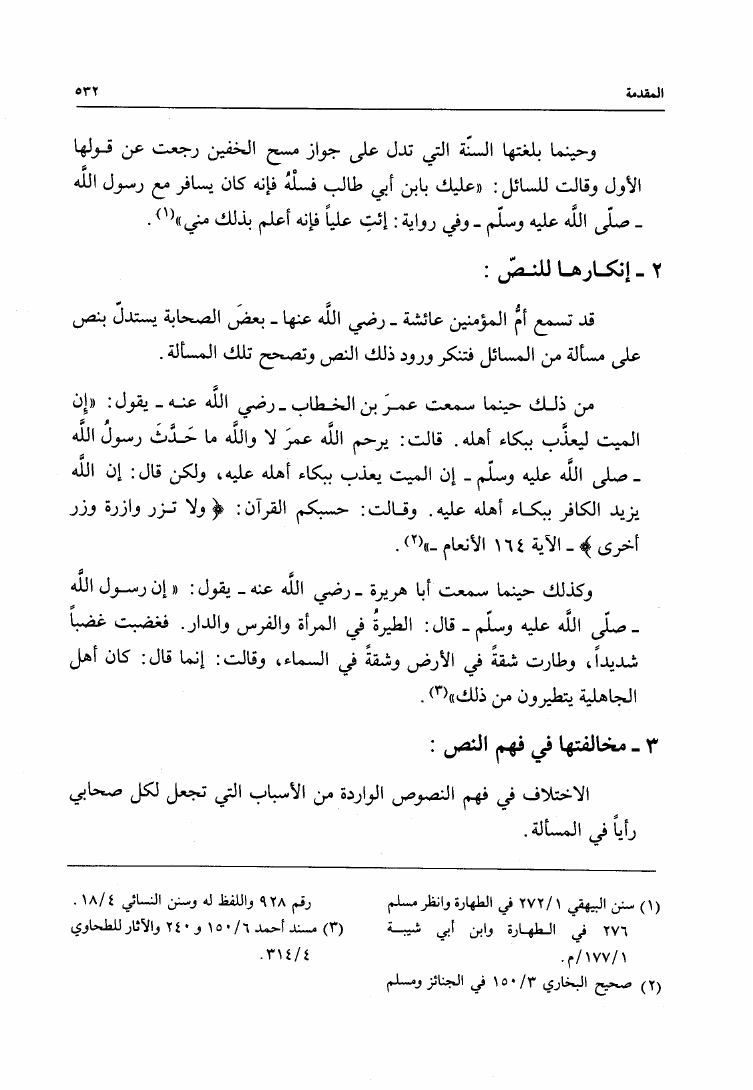 المقدمة ٥٣٢
وحينما بلغتها السنّة التي تدل على جواز مسح الخفين رجعت عن قـولها
الأول وقالت للسائل: «عليك بابن أبي طالب فسلْهُ فإنه كان يسافر مع رسول اللَّه
ـ صلّى اللَّه عليه وسلّم ـ وفي رواية: إئتِ علياً فإنه أعلم بذلك مني»(١).
٢ ـ إنكـارهـا للنـصّ :
قد تسمع أمُّ المؤمنين عائشة ـ رضي اللَّه عنها ـ بعضَ الصحابة يستدلّ بنص
على مسألة من المسائل فتنكر ورود ذلك النص وتصحح تلك المسألة.
من ذلـك حينما سمعت عمـرَ بن الخـطاب ـ رضي اللَّه عنـه ـ يقول: «إن
الميت ليعذَّب ببكاء أهله. قالت: يرحم اللَّه عمرَ لا واللَّه ما حَـدَّثَ رسولُ اللَّه
ـ صلى اللَّه عليه وسلّم ـ إن الميت يعذب ببكاء أهله عليه، ولكن قال: إن اللَّه
يزيد الكافر ببكـاء أهله عليه. وقـالت: حسبكم القرآن: ﴿ ولا تـزر وازرة وزر
أخرى ﴾ ـ الآية ١٦٤ الأنعام ـ»(٢).
وكذلك حينما سمعت أبا هريرة ـ رضي اللَّه عنه ـ يقول: «إن رسـول اللَّه
ـ صلّى اللَّه عليه وسلّم ـ قال: الطيرةُ في المرأة والفرس والدار. فغضبت غضباً
شديداً، وطارت شقةً في الأرض وشقةً في السماء، وقالت: إنما قال: كان أهل
الجاهلية يتطيرون من ذلك»(٣).
٣ ـ مخالفتها في فهم النص :
الاختلاف في فهم النصوص الواردة من الأسباب التي تجعل لكل صحابي
رأياً في المسألة.
(١) سنن البيهقي ٢٧٢/١ في الطهارة وانظر مسلم
٢٧٦ في الـطهـارة وابن أبي شيبـة
١٧٧/١/م.
(٢) صحيح البخاري ١٥٠/٣ في الجنائز ومسلم
رقم ٩٢٨ واللفظ له وسنن النسائي ١٨/٤.
(٣) مسند أحمد ١٥٠/٦ و ٢٤٠ والآثار للطحاوي
٣١٤/٤.